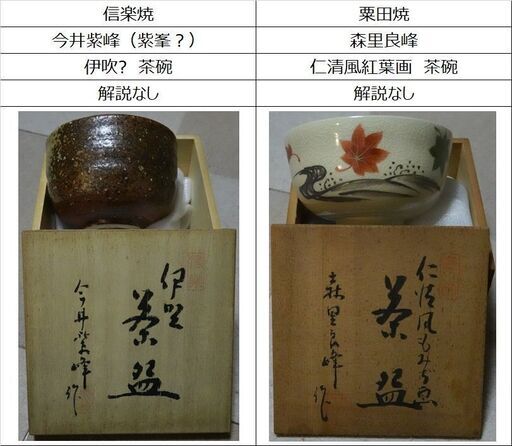 信楽焼
今井紫峰（紫峯？）
伊吹? 茶碗
解説なし
粟田焼
森里良峰
仁清風紅葉画 茶碗
解説なし
茶盌
今井紫峰作
仁清風もみぢ画
茶盌
森里良峰作